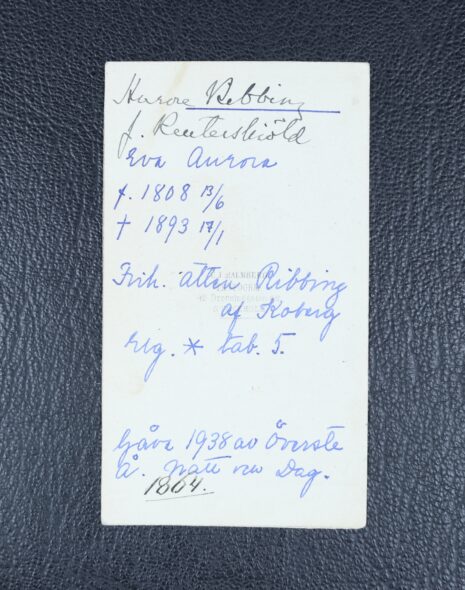 Aurore Ribbing
f. Reuterskiöld
Eva Aurora
f. 1808 13/6
† 1893 17/1
Frih. ätten Ribbing
af Koberg
tab. 5.
Gåva 1938 av Överste
Å. Natt och Dag.
1864.